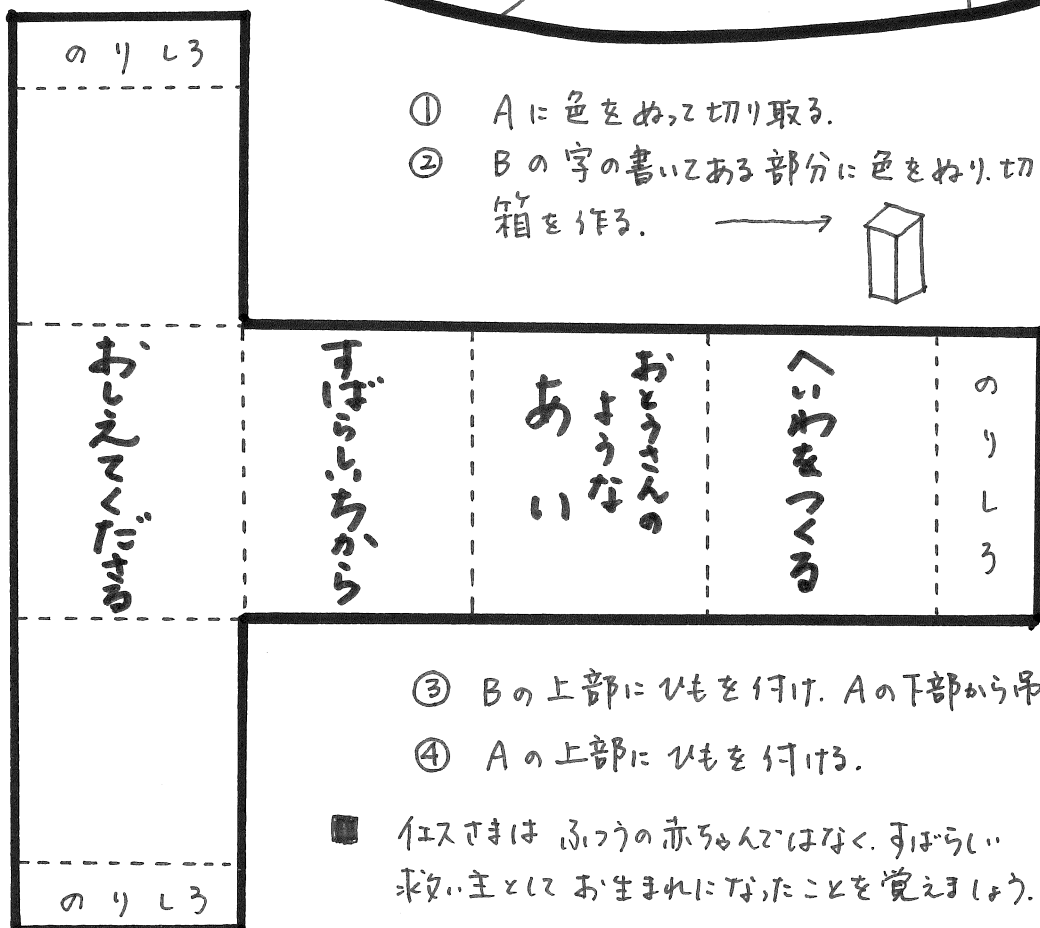 のりしろ
① Aに色をぬって切り取る.
② Bの字の書いてある部分に色をぬり、切
箱を作る.
おしえてくださる
すばらしいちから
おとうさんの
ような
あい
へいわをつくる
のりしろ
③ Bの上部にひもを付け、Aの下部から吊
④ Aの上部にひもを付ける.
■ イエスさまはふつうの赤ちゃんではなく、すばらしい
救い主としてお生まれになったことを覚えましょう.
のりしろ